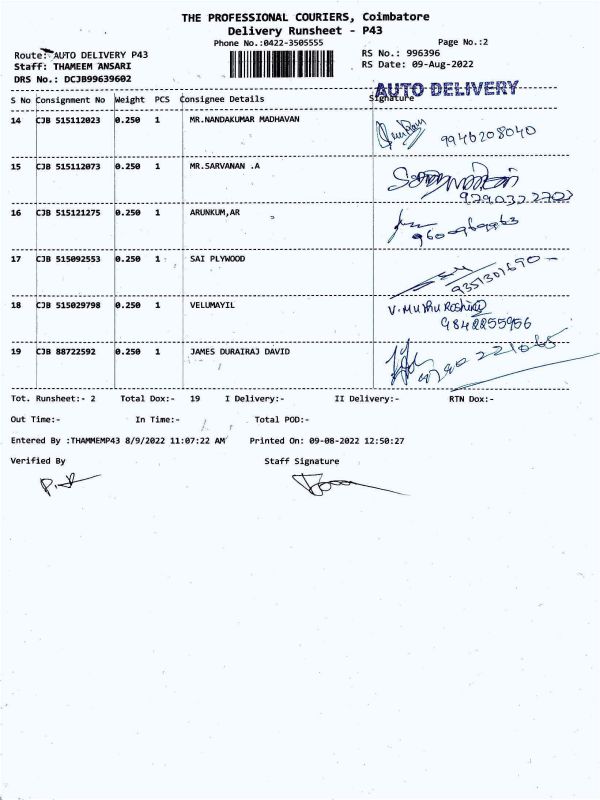 THE PROFESSIONAL COURIERS, Coimbatore
Delivery Runsheet - P43
Phone No.:0422-3505555 Page No.:2
Route: AUTO DELIVERY P43 RS No.: 996396
Staff: THAMEEM ANSARI RS Date: 09-Aug-2022
DRS No.: DCJB99639602
AUTO DELIVERY
S No Consignment No Weight PCS Consignee Details Signature
14 CJB 515112023 0.250 1 MR.NANDAKUMAR MADHAVAN
9946208040
15 CJB 515112073 0.250 1 MR.SARVANAN .A
16 CJB 515121275 0.250 1 ARUNKUM,AR
17 CJB 515092553 0.250 1 SAI PLYWOOD
9351301690
18 CJB 515029798 0.250 1 VELUMAYIL
9842255956
19 CJB 88722592 0.250 1 JAMES DURAIRAJ DAVID
Tot. Runsheet:- 2 Total Dox:- 19 I Delivery:- II Delivery:- RTN Dox:-
Out Time:- In Time:- Total POD:-
Entered By :THAMMEMP43 8/9/2022 11:07:22 AM Printed On: 09-08-2022 12:50:27
Verified By Staff Signature